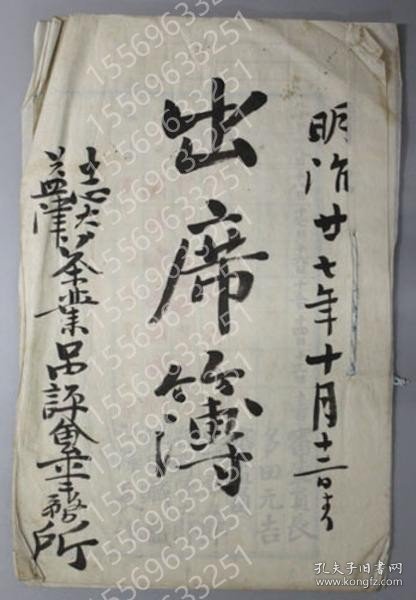 明治廿七年十月十二日ヨリ
出席簿
志太
益津茶業品評會事務所
多田元吉
15569633251
15569633251
15569633251
15569633251
15569633251
15569633251
孔夫子旧书网
www.kongfz.com